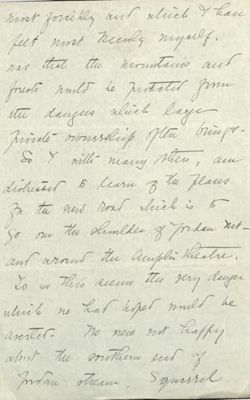 most forcibly and which I have
felt most keenly myself.
was that the mountains and
forests would be protected from
the dangers which large
private ownership often brings.
So I with many others, am
distressed to learn of the plans
for the new road which is to
go over the shoulder of Jordan Mt-
and around the Amphitheatre.
To us this seems the very danger
which we had hoped would be
averted. We were not happy
about the southern end of
Jordan stream, Squirrel